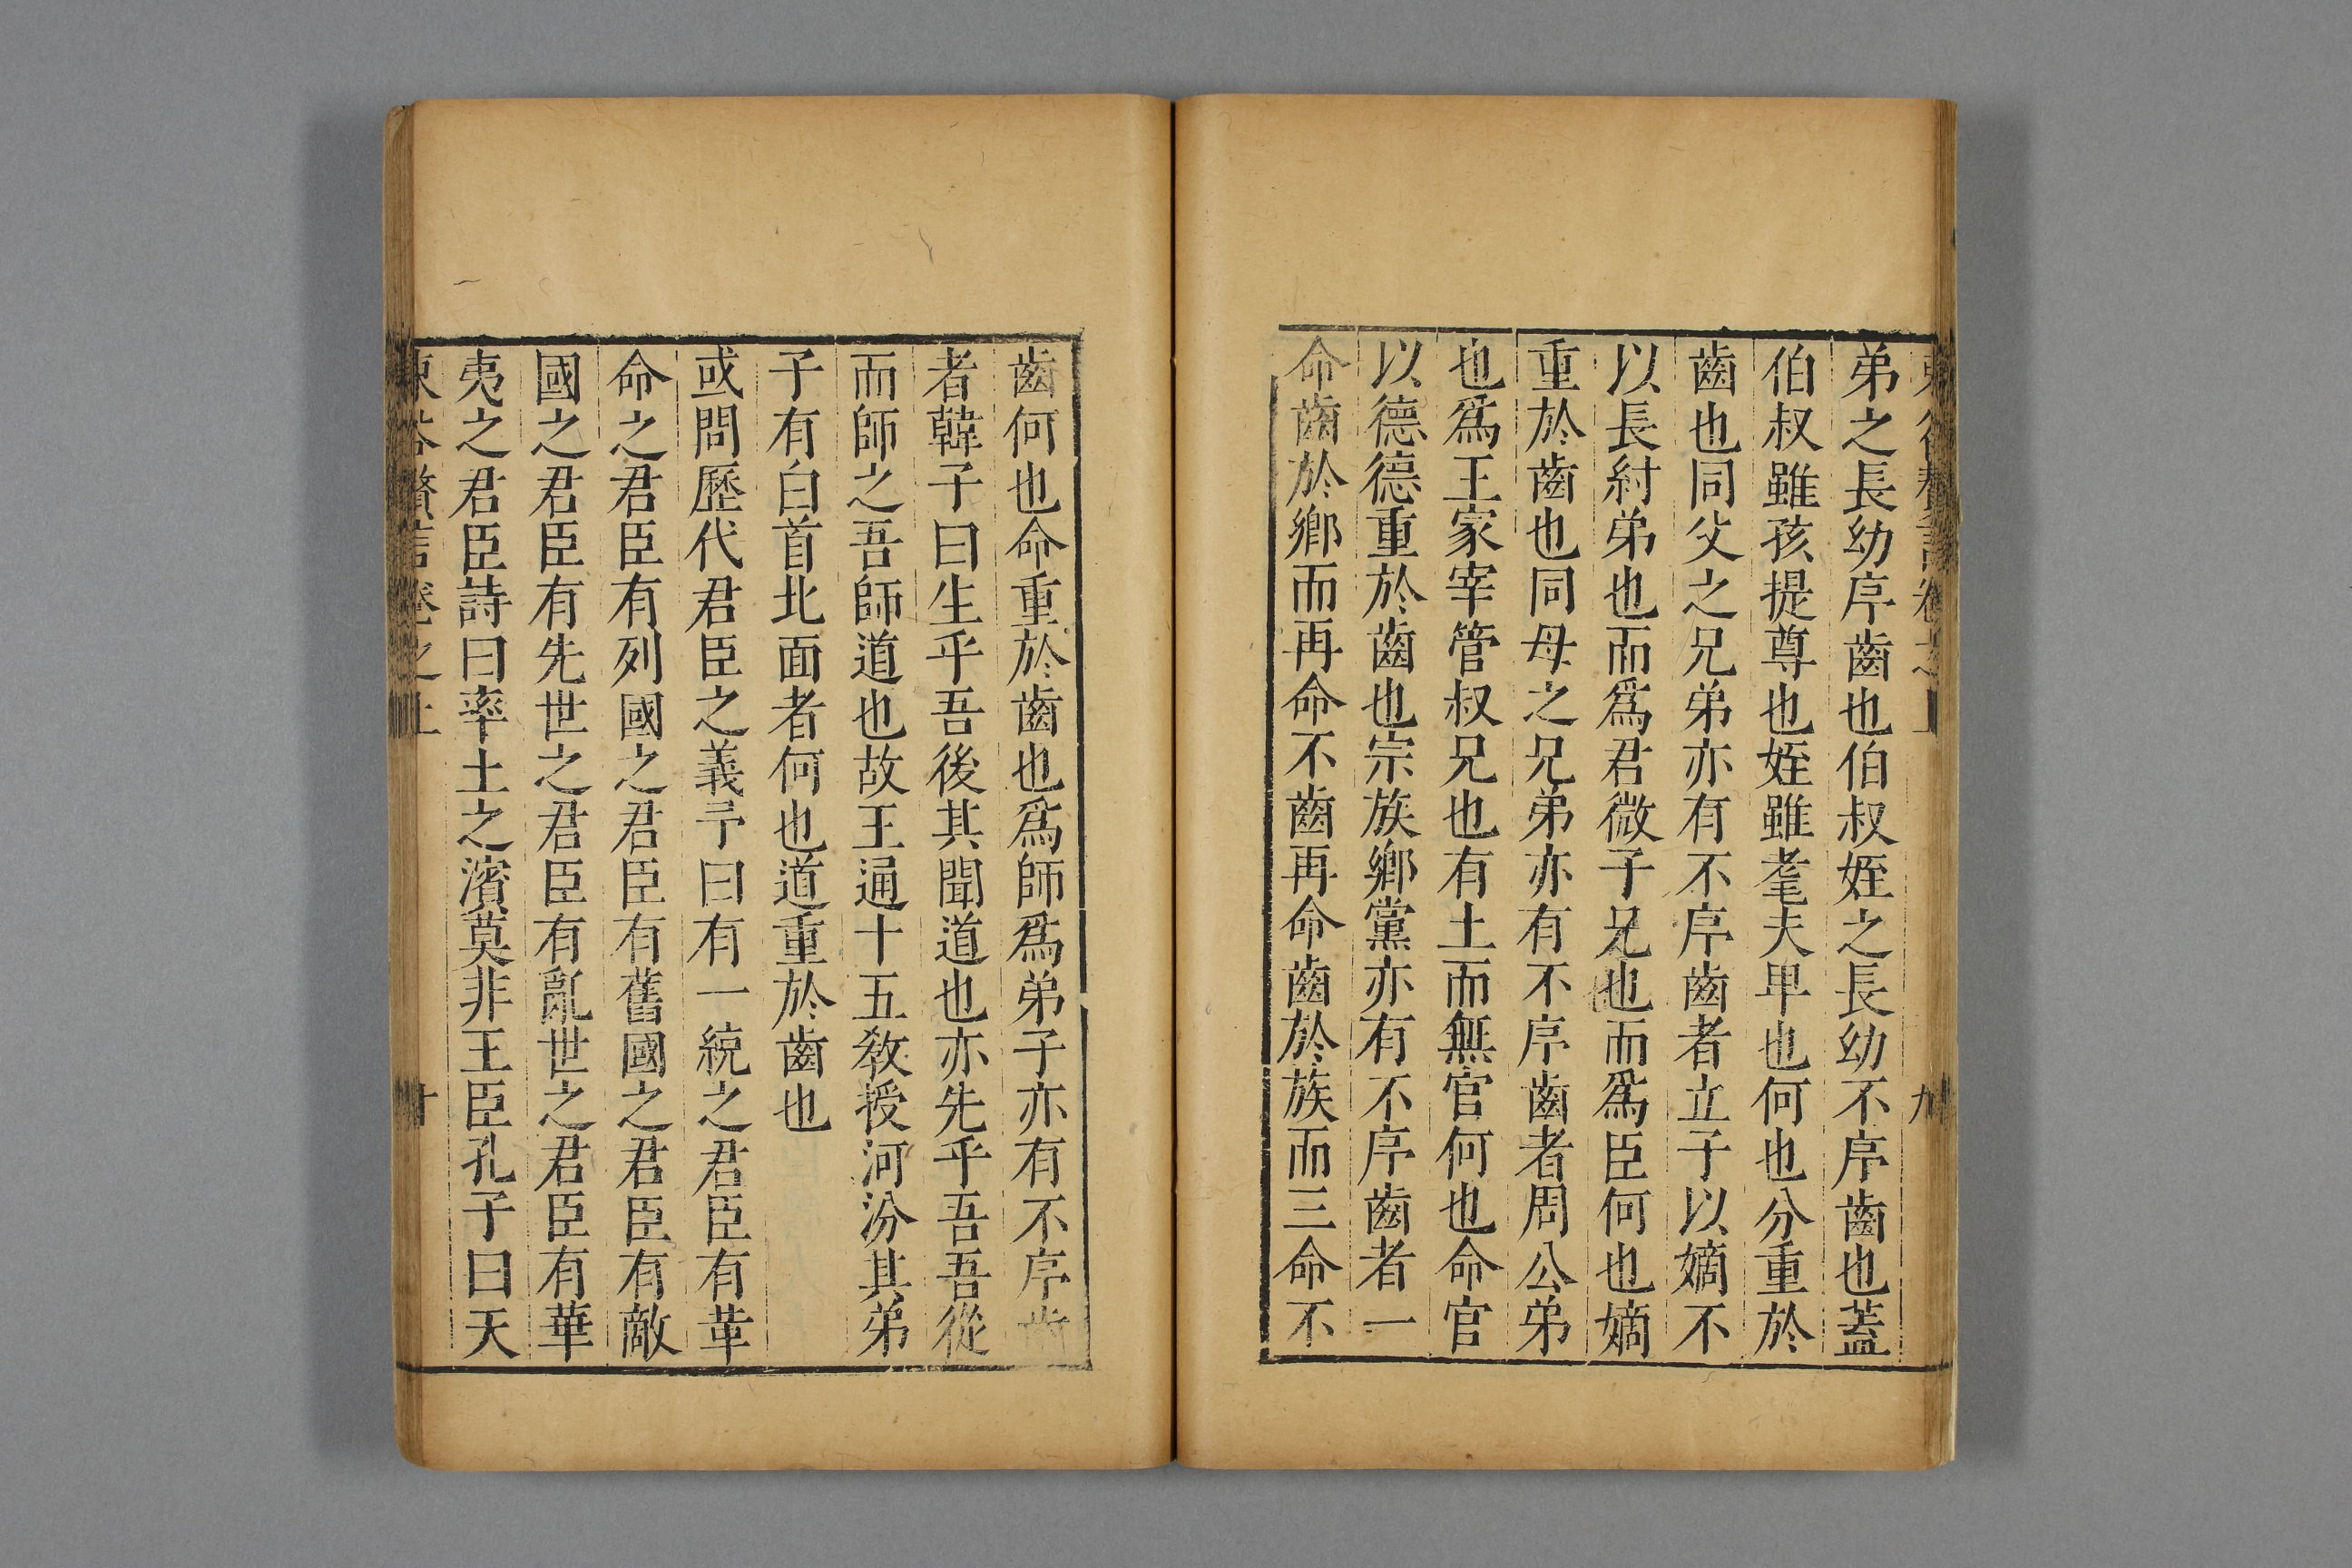 弟之長幼序齒也伯叔姪之長幼不序齒也蓋
伯叔雖孩提尊也姪雖耄夫卑也何也分重於
齒也同父之兄弟亦有不序齒者立子以嫡不
以長紂弟也而爲君微子兄也而爲臣何也嫡
重於齒也同母之兄弟亦有不序齒者周公弟
也爲王家宰管叔兄也有土而無官何也命官
以德德重於齒也宗族鄉黨亦有不序齒者一
命齒於鄉而再命不齒再命齒於族而三命不
齒何也命重於齒也爲師爲弟子亦有不序齒
者韓子曰生乎吾後其聞道也亦先乎吾吾從
而師之吾師道也故王通十五教授河汾其弟
子有白首北面者何也道重於齒也
或問歷代君臣之義予曰有一統之君臣有革
命之君臣有列國之君臣有舊國之君臣有敵
國之君臣有先世之君臣有亂世之君臣有華
夷之君臣詩曰率土之濱莫非王臣孔子曰天